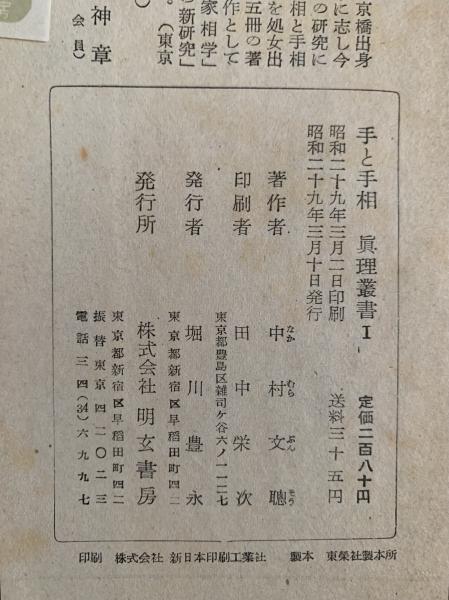 京橋出身
に志し今
の研究に
相と手相
を処女出
五冊の著
作として
家相学」
ら新研究」
。(東京
)
神章
会員)
手と手相 眞理叢書Ⅰ 定価二百八十円
昭和二十九年三月二日印刷 送料三十五円
昭和二十九年三月十日発行
著作者 中村文聰
なか むら ぶん そう
印刷者 田中栄次
東京都豊島区雑司ケ谷六ノ一一二七
発行者 堀川豊永
東京都新宿区早稲田町四二
発行所 株式会社 明玄書房
東京都新宿区早稲田町四二
振替東京四二〇二三
電話三四(34)六九九七
印刷 株式会社 新日本印刷工業社 製本 東榮社製本所